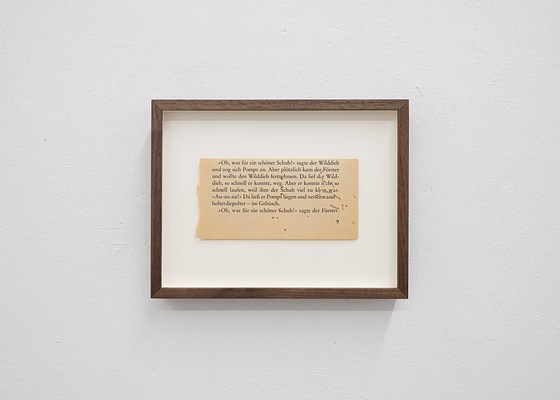 »Oh, was für ein schöner Schuh!« sagte der Wilddieb
und zog sich Pomps an. Aber plötzlich kam der Förster
und wollte den Wilddieb festnehmen. Da lief der Wild-
dieb, so schnell er konnte, weg. Aber er konnte nicht so
schnell laufen, weil ihm der Schuh viel zu klein war.
»Au-au-au!« Da ließ er Pomps liegen und verschwand
holterdiepolter – im Gebüsch.
»Oh, was für ein schöner Schuh!« sagte der Förster.
9